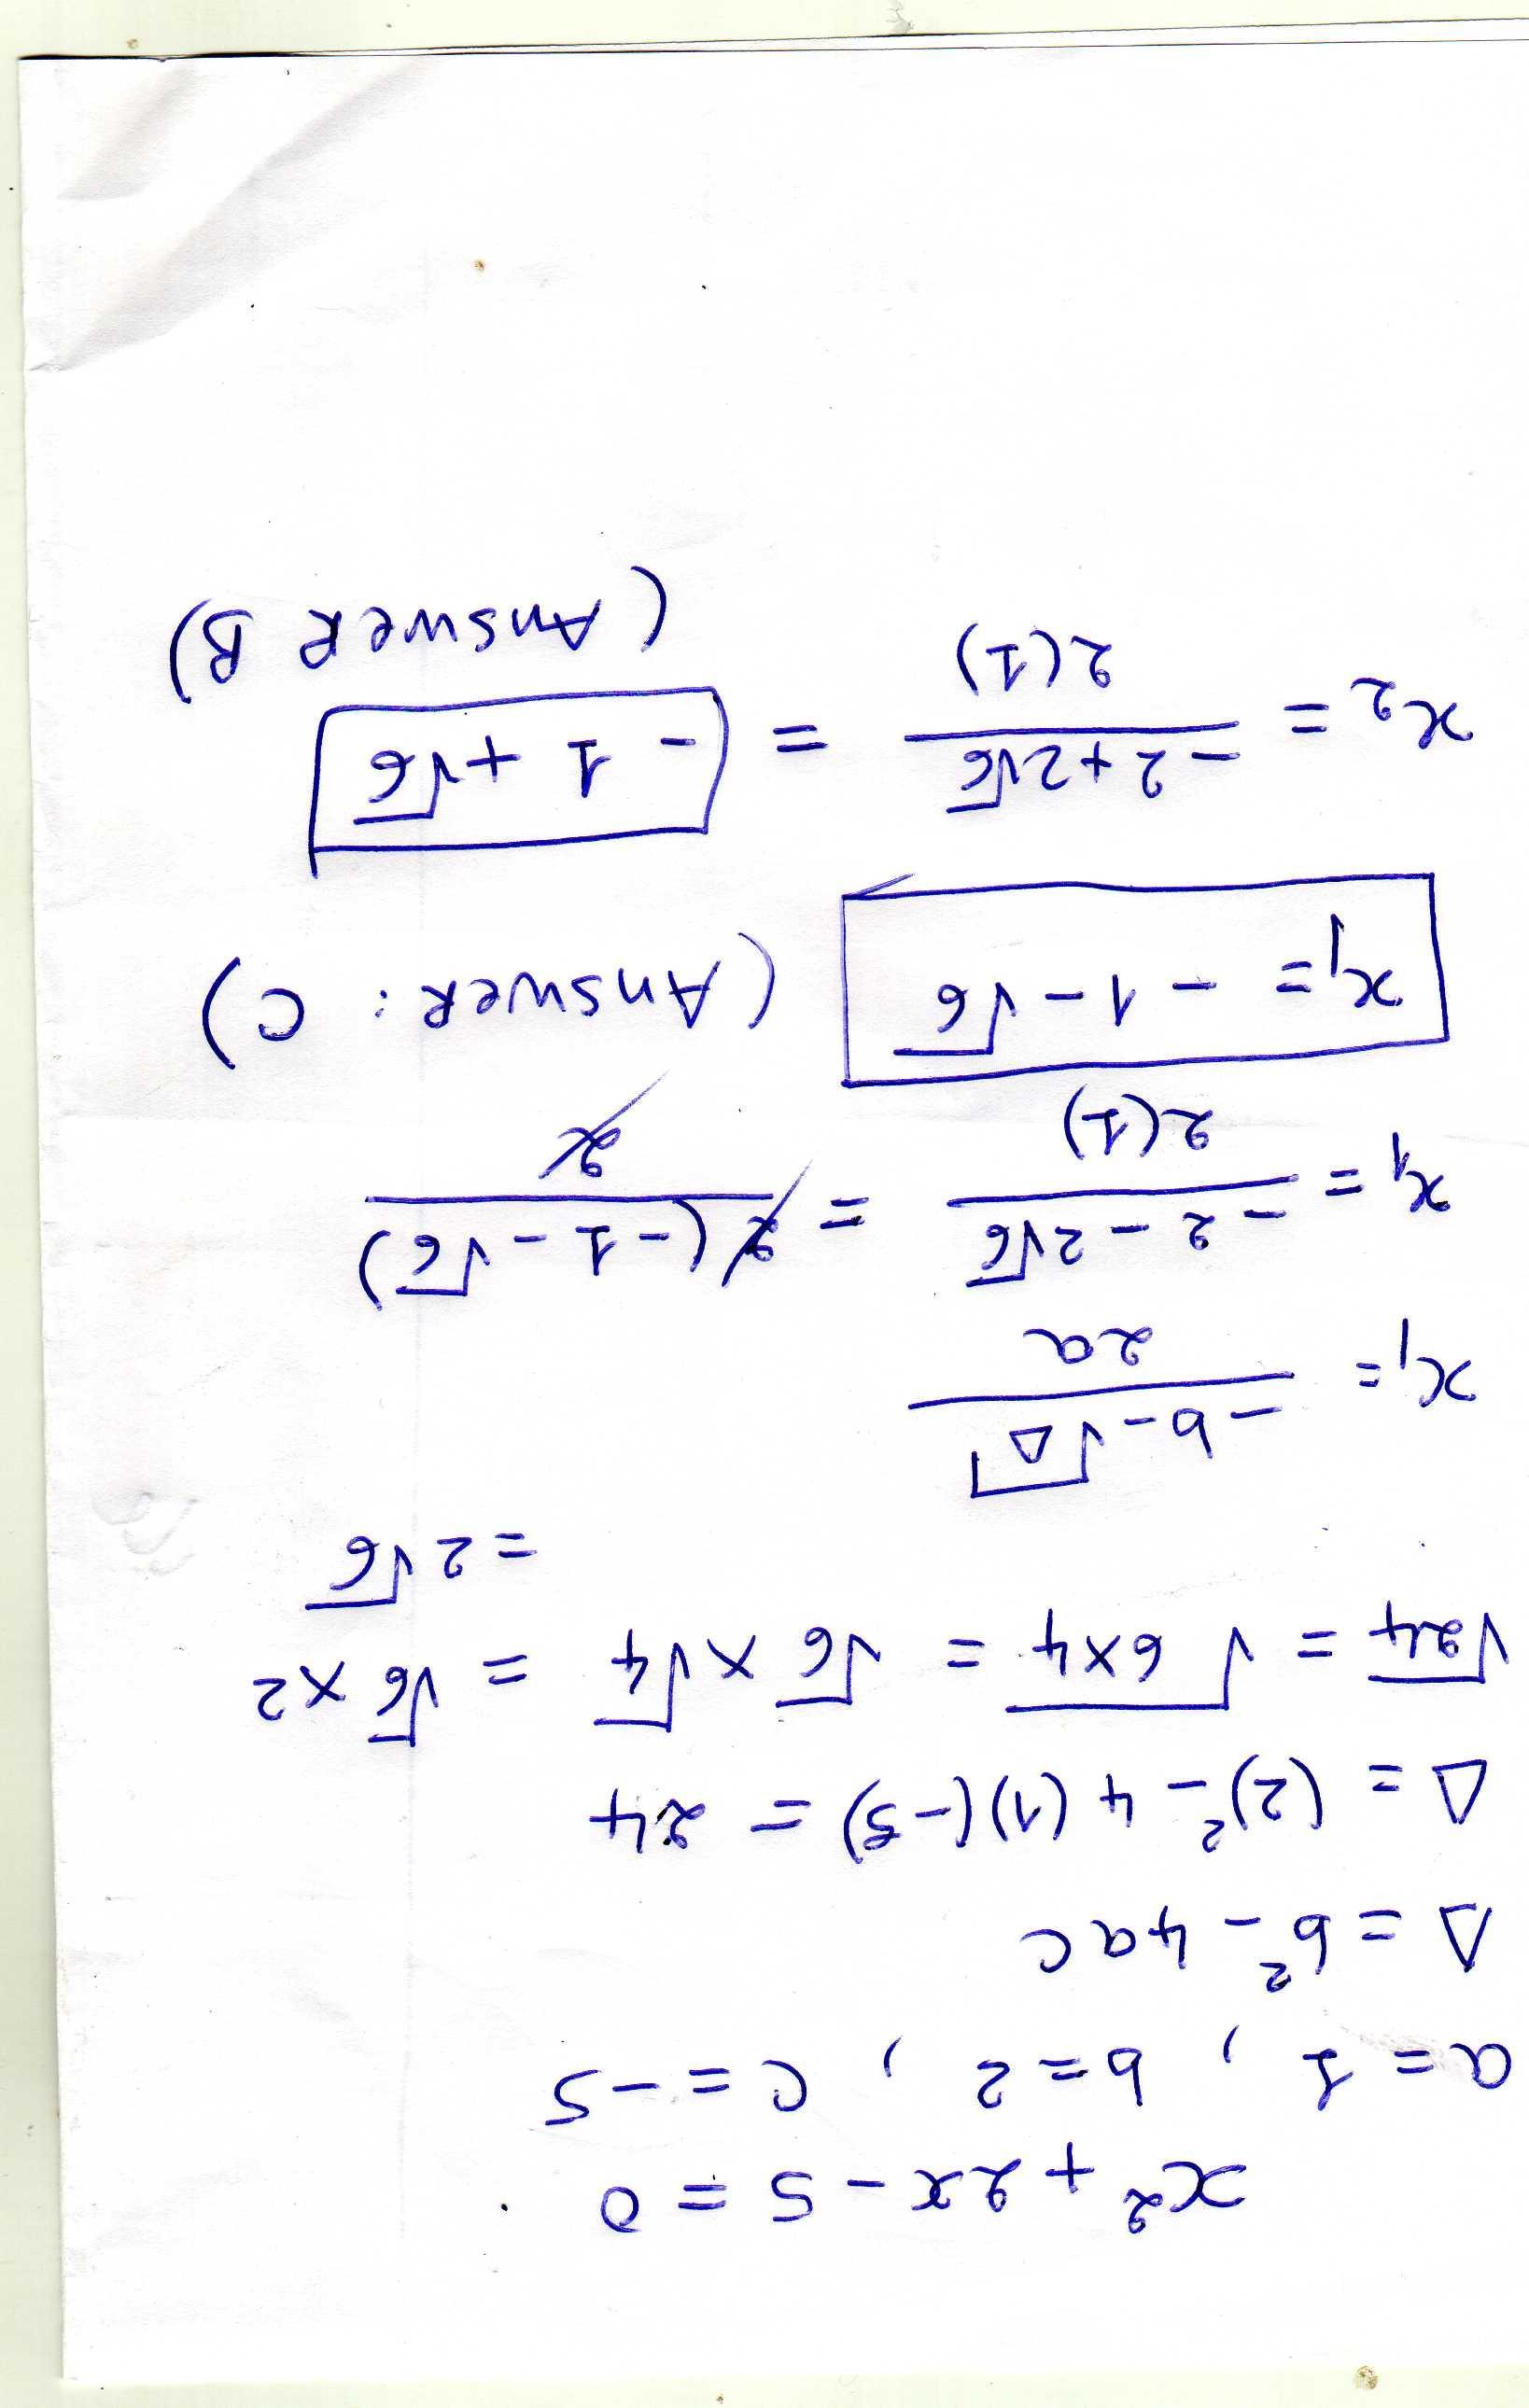 x² + 2x - 5 = 0
a = 1, b = 2, c = -5
Δ = b² - 4ac
Δ = (2)² - 4(1)(-5) = 24
√24 = √6×4 = √6 × √4 = √6 × 2
= 2√6
x₁ = (-b - √Δ) / 2a
x₁ = (-2 - 2√6) / 2(1) = 2(-1 - √6) / 2
x₁ = -1 - √6 (Answer: C)
x₂ = (-2 + 2√6) / 2(1) = -1 + √6 (Answer B)